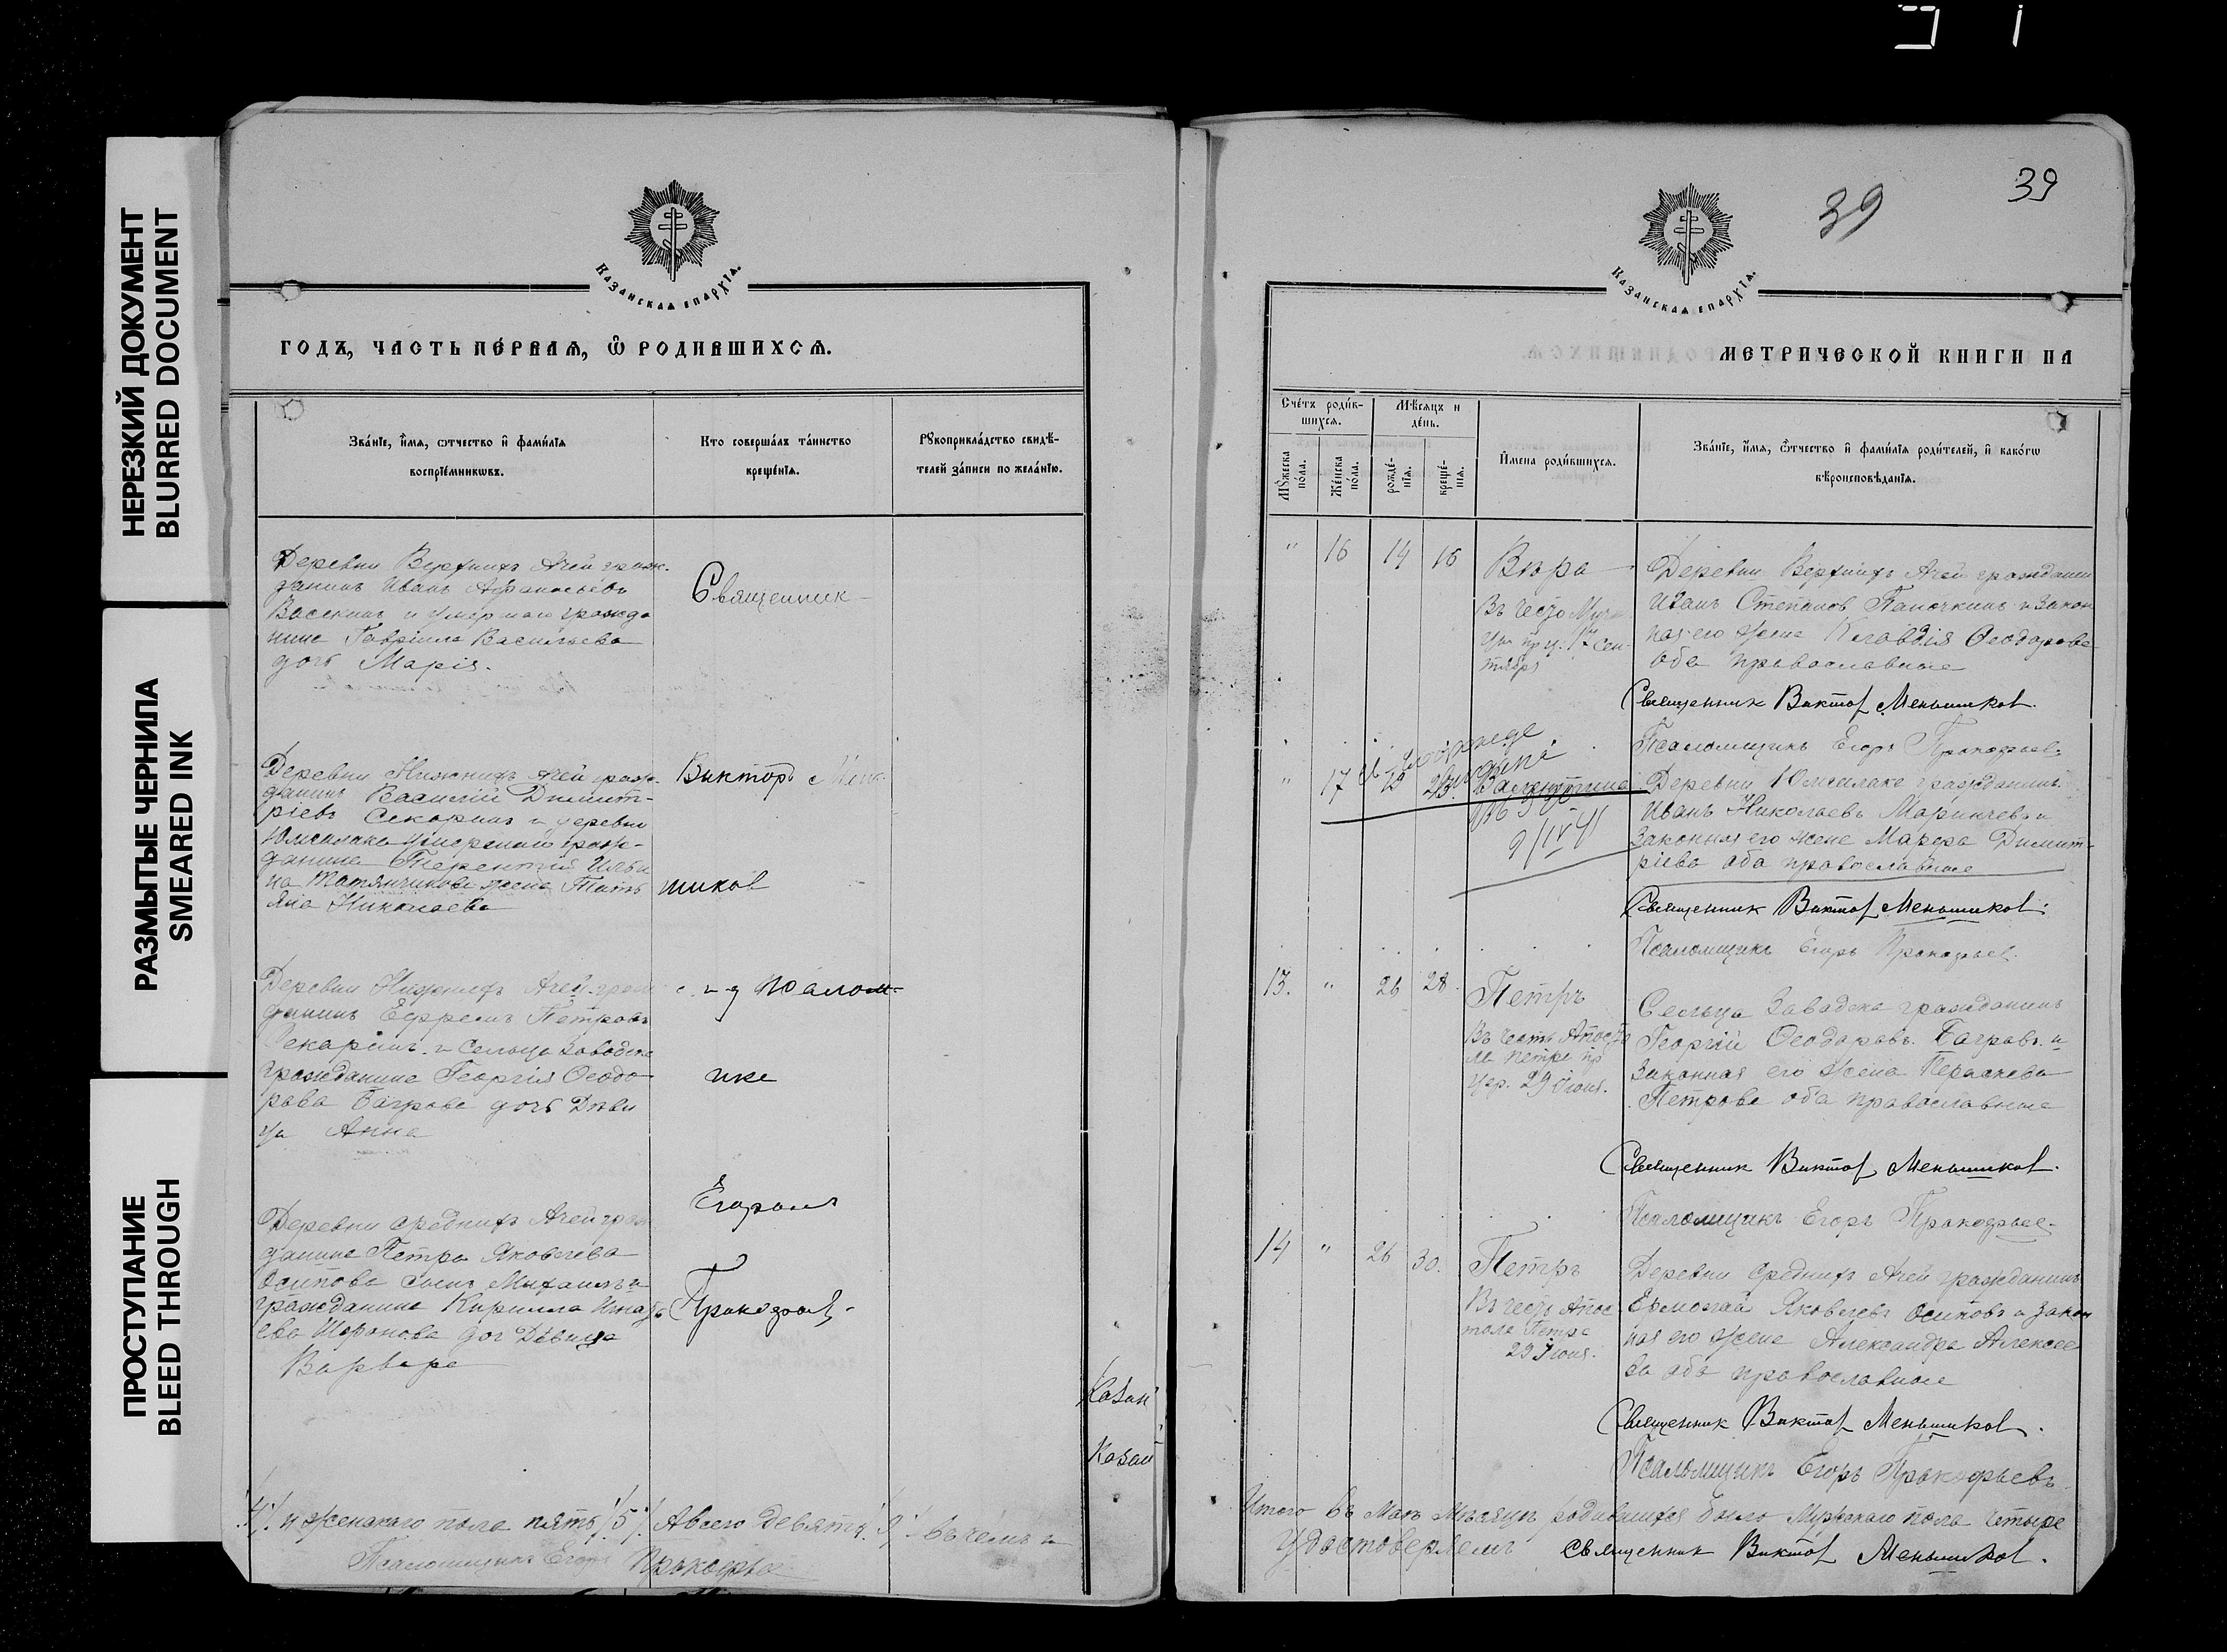 НЕРЕЗКИЙ ДОКУМЕНТ
BLURRED DOCUMENT
РАЗМЫТЫЕ ЧЕРНИЛА
SMEARED INK
ПРОСТУПАНИЕ
BLEED THROUGH
Казанскаѧ епархїѧ.
ГОДЪ, ЧАСТЬ ПЕ́РВАѦ, Ѽ РОДИВШИХСѦ.
Зва́нїе, и҆́мѧ, ѻтчество и҆ фами́лїѧ
воспрїе́мникѡвъ.
Кто совершалъ та́инство
креще́нїѧ.
Рꙋкоприкла́дство свидѣ́-
телей за́писи по жела́нїю.
Деревни Верхнихъ Ачей граж-
данинъ Иванъ Афанасьевъ
Васекинъ и умершаго гражда
нина Гавріила Васильева
дочь Марія.
Священник
Деревни Нижнихъ Ачей граж-
данинъ Василій Димит-
ріевъ Секаринъ и деревни
Юмсалака умершаго граж-
данина Терентія Ильи
на жена Тать
яна Николаева
Викторъ Мень
шиков
Деревни Нижнихъ Ачей граж
данинъ Ефремъ Петровъ
Секаринъ и Сельца Заводска
гражданина Георгія Ѳеодо
рова Багрова дочь Дѣви
ца Анна
с и д псалом-
ике
Деревни Среднихъ Ачей граж
данина Петра Яковлева
Осипова сынъ Михаилъ и
гражданина Кирилла Игнать
ева дог Дѣвица
Варвара
Егоромъ
Прокофьев
Казан
Казан
/4/. и женскаго пола пять /5/. А всего девять /9/ - въ чемъ и
Псаломщикъ Егоръ Прокофьев
39
39
Казанскаѧ епархїѧ.
МЕТРИЧЕСКОЙ КНИГИ НА
Сче́тъ роди́в-
шихсѧ.
Мѣ́сѧцъ и
де́нь.
Мꙋ́жеска
по́ла.
Же́нска
по́ла.
рожде́-
нїѧ.
креще́-
нїѧ.
И҆мена роди́вшихсѧ.
Зва́нїе, и҆́мѧ, ѻ҆́тчество и҆ фами́лїѧ роди́телей, и҆ како́гѡ
вѣроисповѣ́данїѧ.
" 16 14 16 Вѣра
Въ честь Муче
ц. 17 Сен
тября
Деревни Верхнихъ Ачей гражданин
Иванъ Степанов Паночкинъ и закон
ная его жена Клавдія Ѳеодорова
оба православные
Священник Виктор Меньшиков.
Псаломщикъ Егоръ Прокофьевъ
" 17 Валентина
9/IV 41
Деревни Юмсалака гражданинъ
Иванъ Николаевъ Маринчевъ и
законная его жена Марфа Димит-
ріева оба православные
Священник Виктор Меньшиков.
Псаломщикъ Егоръ Прокофьев.
13. " 26 28. Петръ
Въ честь Апосто
ла Петра пр
цер. 29 Іюня.
Сельца Заводска гражданинъ
Георгій Ѳеодоровъ Багровъ и
законная его жена Параскева
Петрова оба православные
Священник Виктор Меньшиков.
Псаломщикъ Егоръ Прокофьев
14 " 26 30. Петръ
Въ честь Апос
тола Петра
29 Іюня.
Деревни Среднихъ Ачей гражданинъ
Ермолай Яковлевъ Осиповъ и закон
ная его жена Александра Алексее
ва оба православные
Священник Виктор Меньшиков.
Псаломщикъ Егоръ Прокофьевъ
Итого въ Маѣ Мѣсяцѣ родившихся было Мужскаго пола четыре
Удостоверяемъ Священник Виктор Меньшиков.